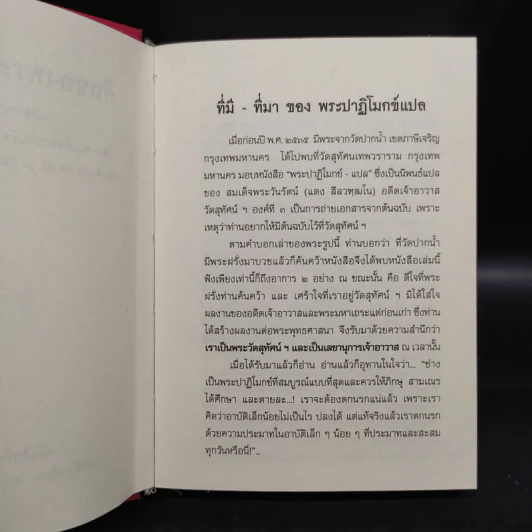 ที่มี - ที่มา ของ พระปาฏิโมกข์แปล
เมื่อก่อนปี พ.ศ. ๒๕๓๕ มีพระจากวัดปากน้ำ เขตภาษีเจริญ
กรุงเทพมหานคร ได้ไปพบที่วัดสุทัศนเทพวราราม กรุงเทพ
มหานคร มอบหนังสือ "พระปาฏิโมกข์ - แปล" ซึ่งเป็นนิพนธ์แปล
ของ สมเด็จพระวันรัตน์ (แดง สีลวฑฺฒโน) อดีตเจ้าอาวาส
วัดสุทัศน์ ฯ องค์ที่ ๓ เป็นการถ่ายเอกสารจากต้นฉบับ เพราะ
เหตุว่าท่านอยากให้มีต้นฉบับไว้ที่วัดสุทัศน์ ฯ
ตามคำบอกเล่าของพระรูปนี้ ท่านบอกว่า ที่วัดปากน้ำ
มีพระฝรั่งมาบวชแล้วก็ค้นคว้าหนังสือจึงได้พบหนังสือเล่มนี้
ฟังเพียงเท่านี้ก็ถึงอาการ ๒ อย่าง ณ ขณะนั้น คือ ดีใจที่พระ
ฝรั่งท่านค้นคว้า และ เศร้าใจที่เราอยู่วัดสุทัศน์ ฯ มิได้ใส่ใจ
ผลงานของอดีตเจ้าอาวาสและพระมหาเถระแต่ก่อนเก่า ซึ่งท่าน
ได้สร้างผลงานต่อพระพุทธศาสนา จึงรับมาด้วยความสำนึกว่า
เราเป็นพระวัดสุทัศน์ ฯ และเป็นเลขานุการเจ้าอาวาส ณ เวลานั้น
เมื่อได้รับมาแล้วก็อ่าน อ่านแล้วก็อุทานในใจว่า... "ช่าง
เป็นพระปาฏิโมกข์ที่สมบูรณ์แบบที่สุดและควรให้ภิกษุ สามเณร
ได้ศึกษา และตายละ...! เราจะต้องตกนรกแน่แล้ว เพราะเรา
คิดว่าอาบัติเล็กน้อยไม่เป็นไร ปลงได้ แต่แท้จริงแล้วเราตกนรก
ด้วยความประมาทในอาบัติเล็ก ๆ น้อย ๆ ที่ประมาทและสะสม
ทุกวันหรือนี่!"...